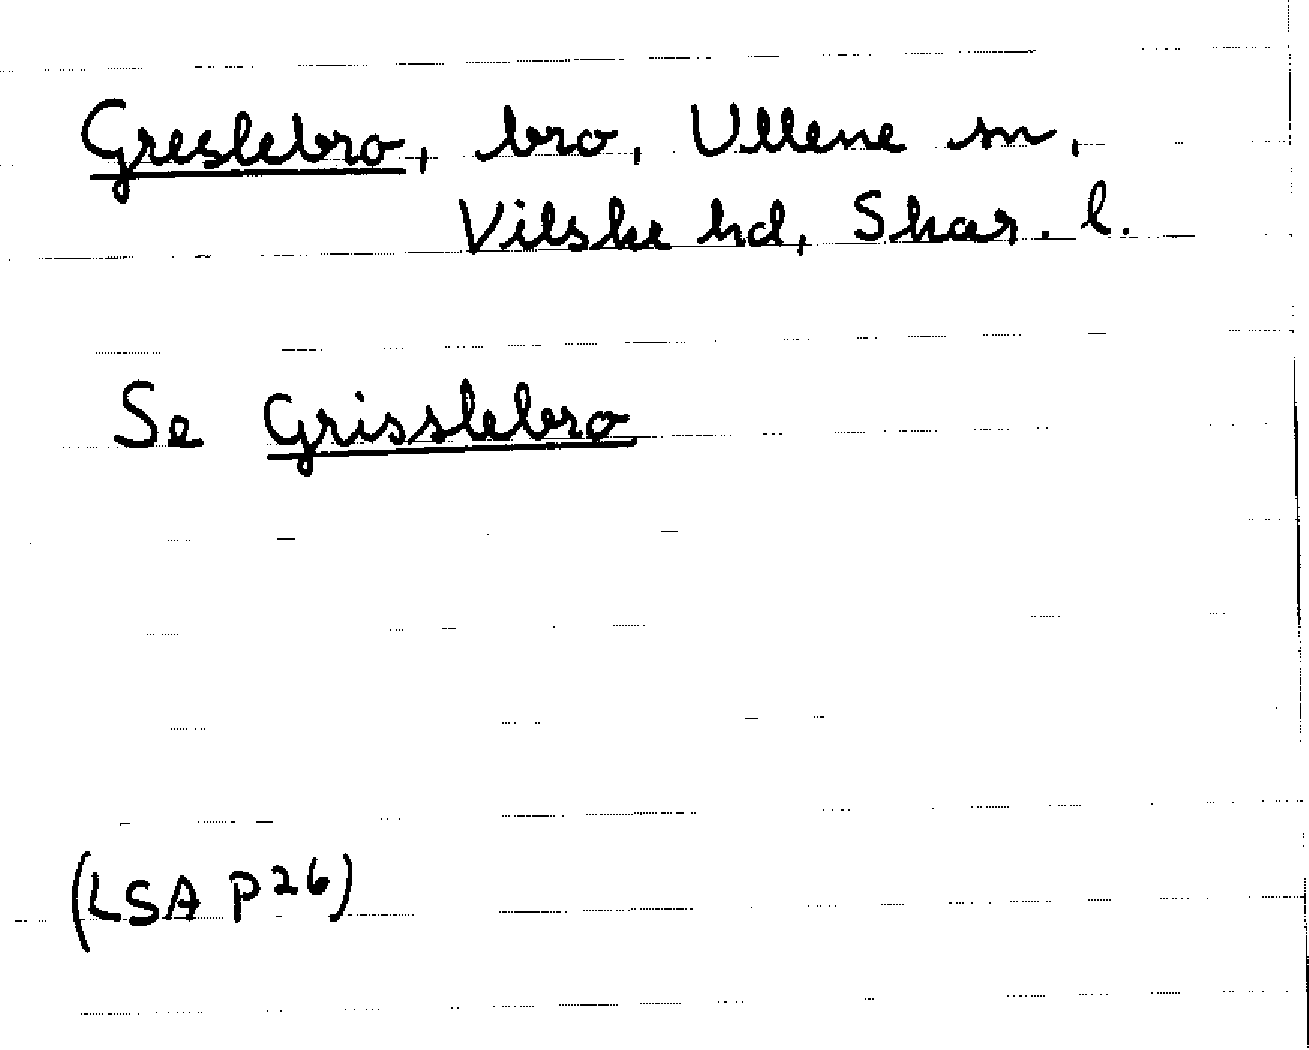 Greslebro, bro, Ullene sn,
Vilske hd, Skar. l.
Se Grisslebro
(LSA P26)